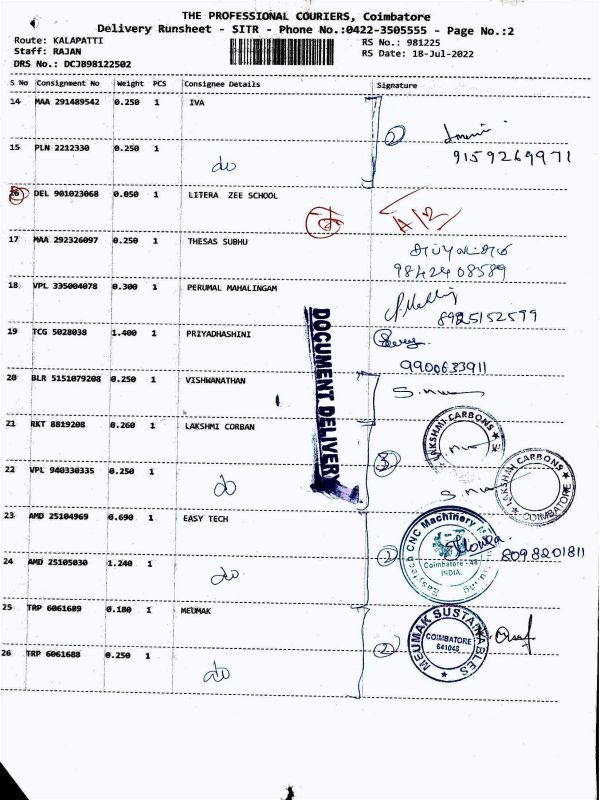 THE PROFESSIONAL COURIERS, Coimbatore
Delivery Runsheet - SITR - Phone No.:0422-3505555 - Page No.:2
Route: KALAPATTI
RS No.: 981225
Staff: RAJAN
RS Date: 18-Jul-2022
DRS No.: DCJB98122502
S No Consignment No Weight PCS Consignee Details Signature
14 MAA 291489542 0.250 1 IVA
15 PLN 2212330 0.250 1 do 2 9159269971
16 DEL 901023068 0.050 1 LITERA ZEE SCHOOL
17 MAA 292326097 0.250 1 THESAS SUBHU
9842408589
18 VPL 335004078 0.300 1 PERUMAL MAHALINGAM
8925152599
19 TCG 5028038 1.400 1 PRIYADHASHINI
9900633911
DOCUMENT DELIVERY
20 BLR 5151079208 0.250 1 VISHWANATHAN
21 RKT 8819208 0.260 1 LAKSHMI CORBAN
LAKSHMI CARBONS
22 VPL 940330335 0.250 1 do 3
LAKSHMI CARBONS COIMBATORE
23 AMD 25104969 0.690 1 EASY TECH
Easytech CNC Machinery
Coimbatore - 48
INDIA.
2 8098201811
24 AMD 25105030 1.240 1 do
25 TRP 6061689 0.180 1 MEUMAK
MEUMAK SUSTAINABLES
COIMBATORE
641048
26 TRP 6061688 0.250 1 do 2